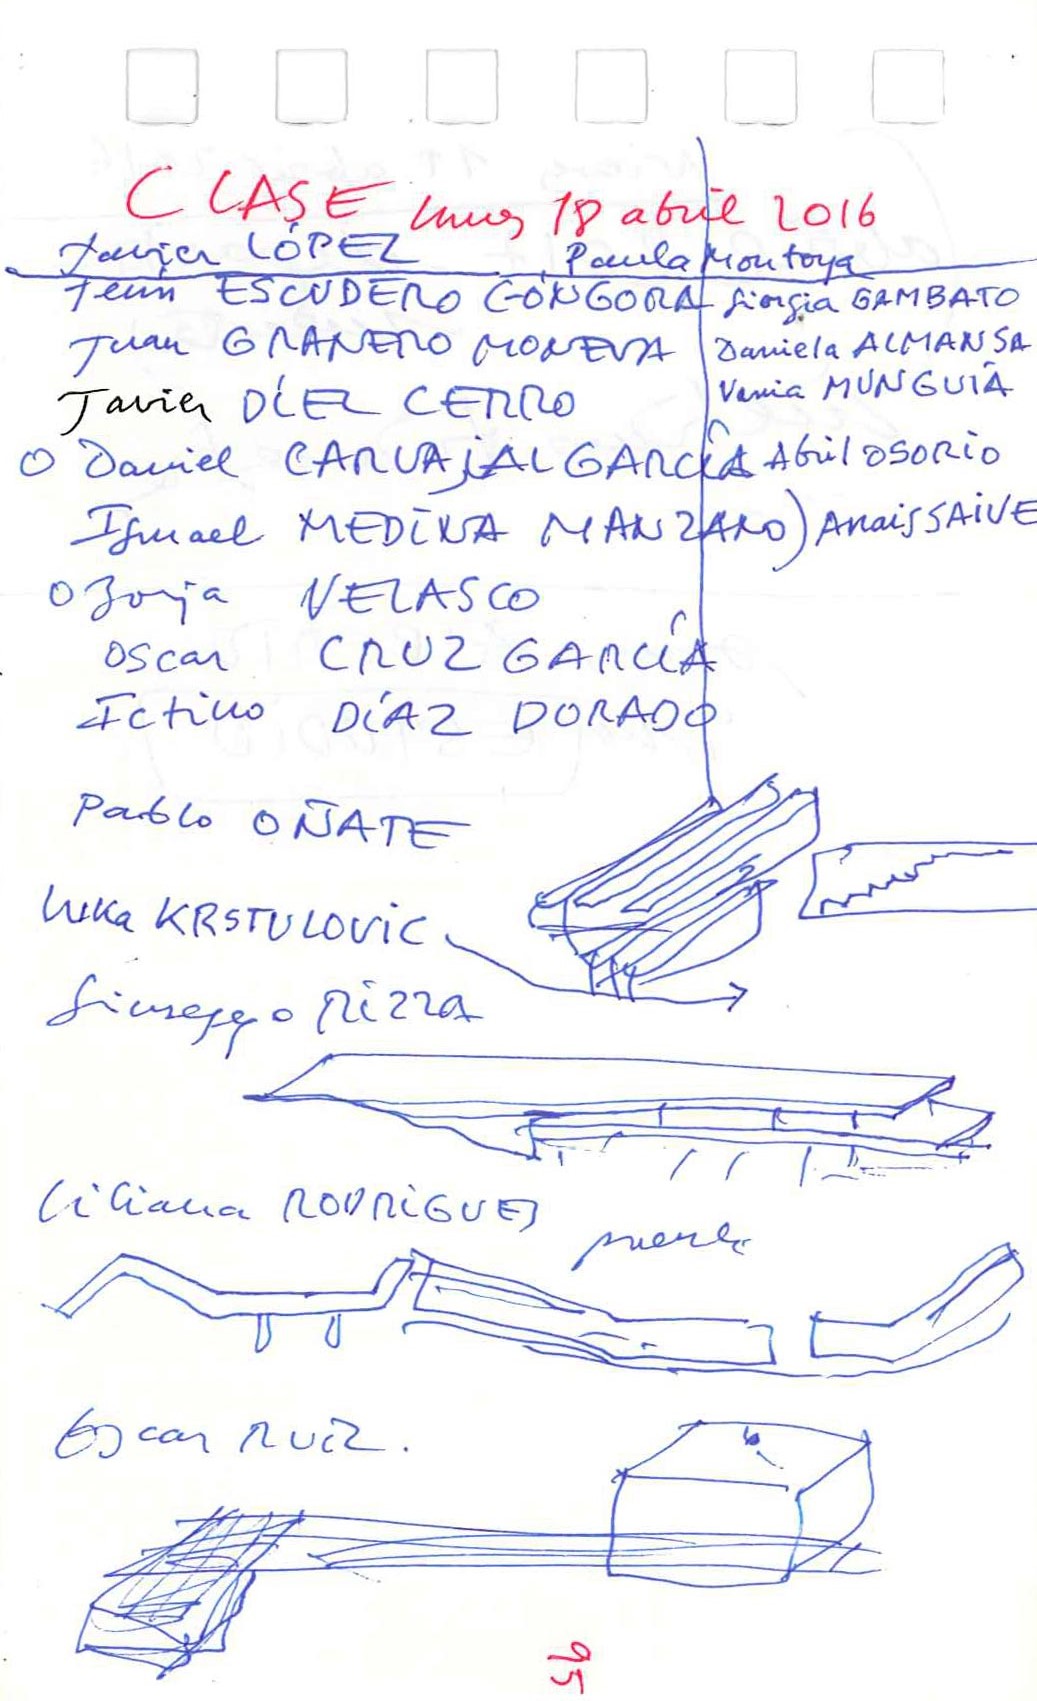 CLASE lunes 18 abril 2016
Javier LÓPEZ Paula Montoya
ESCUDERO GÓNGORA Giorgia GAMBATO
Juan GRANERO MONEVA Daniela ALMANSA
Vania MUNGUÍA
Javier DÍEZ CERRO
O Daniel CARVAJAL GARCÍA Abril OSORIO
Ismael MEDINA MANZANO) Anais SAIVE
O Borja VELASCO
Oscar CRUZ GARCÍA
Ictino DÍAZ DORADO
Pablo OÑATE
Luka KRSTULOVIC
Giuseppe RIZZA
Liliana RODRIGUEZ
puente
Oscar RUIZ.
95